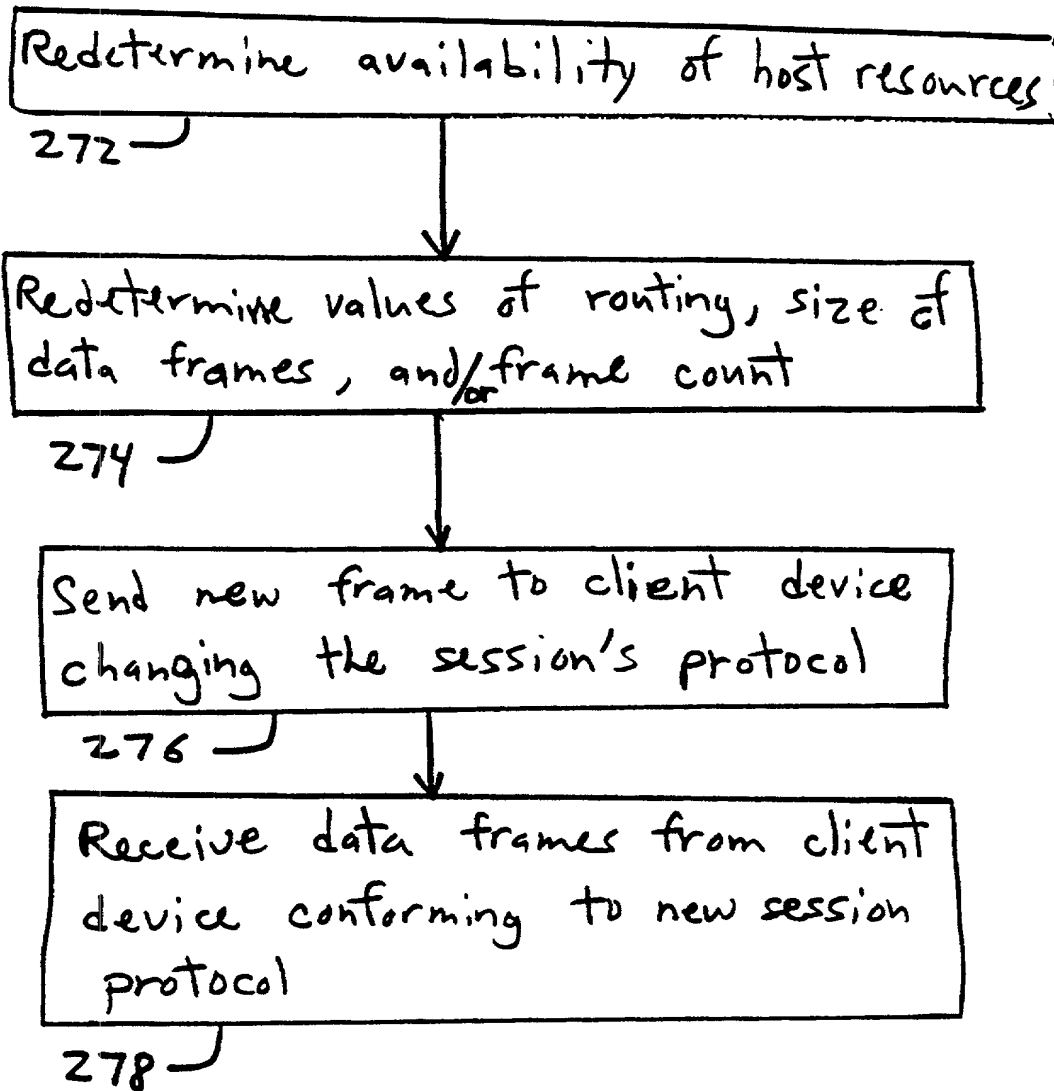 Redetermine availability of host resources
272
Redetermine values of routing, size of
data frames, and/or frame count
274
Send new frame to client device
changing the session's protocol
276
Receive data frames from client
device conforming to new session
protocol
278